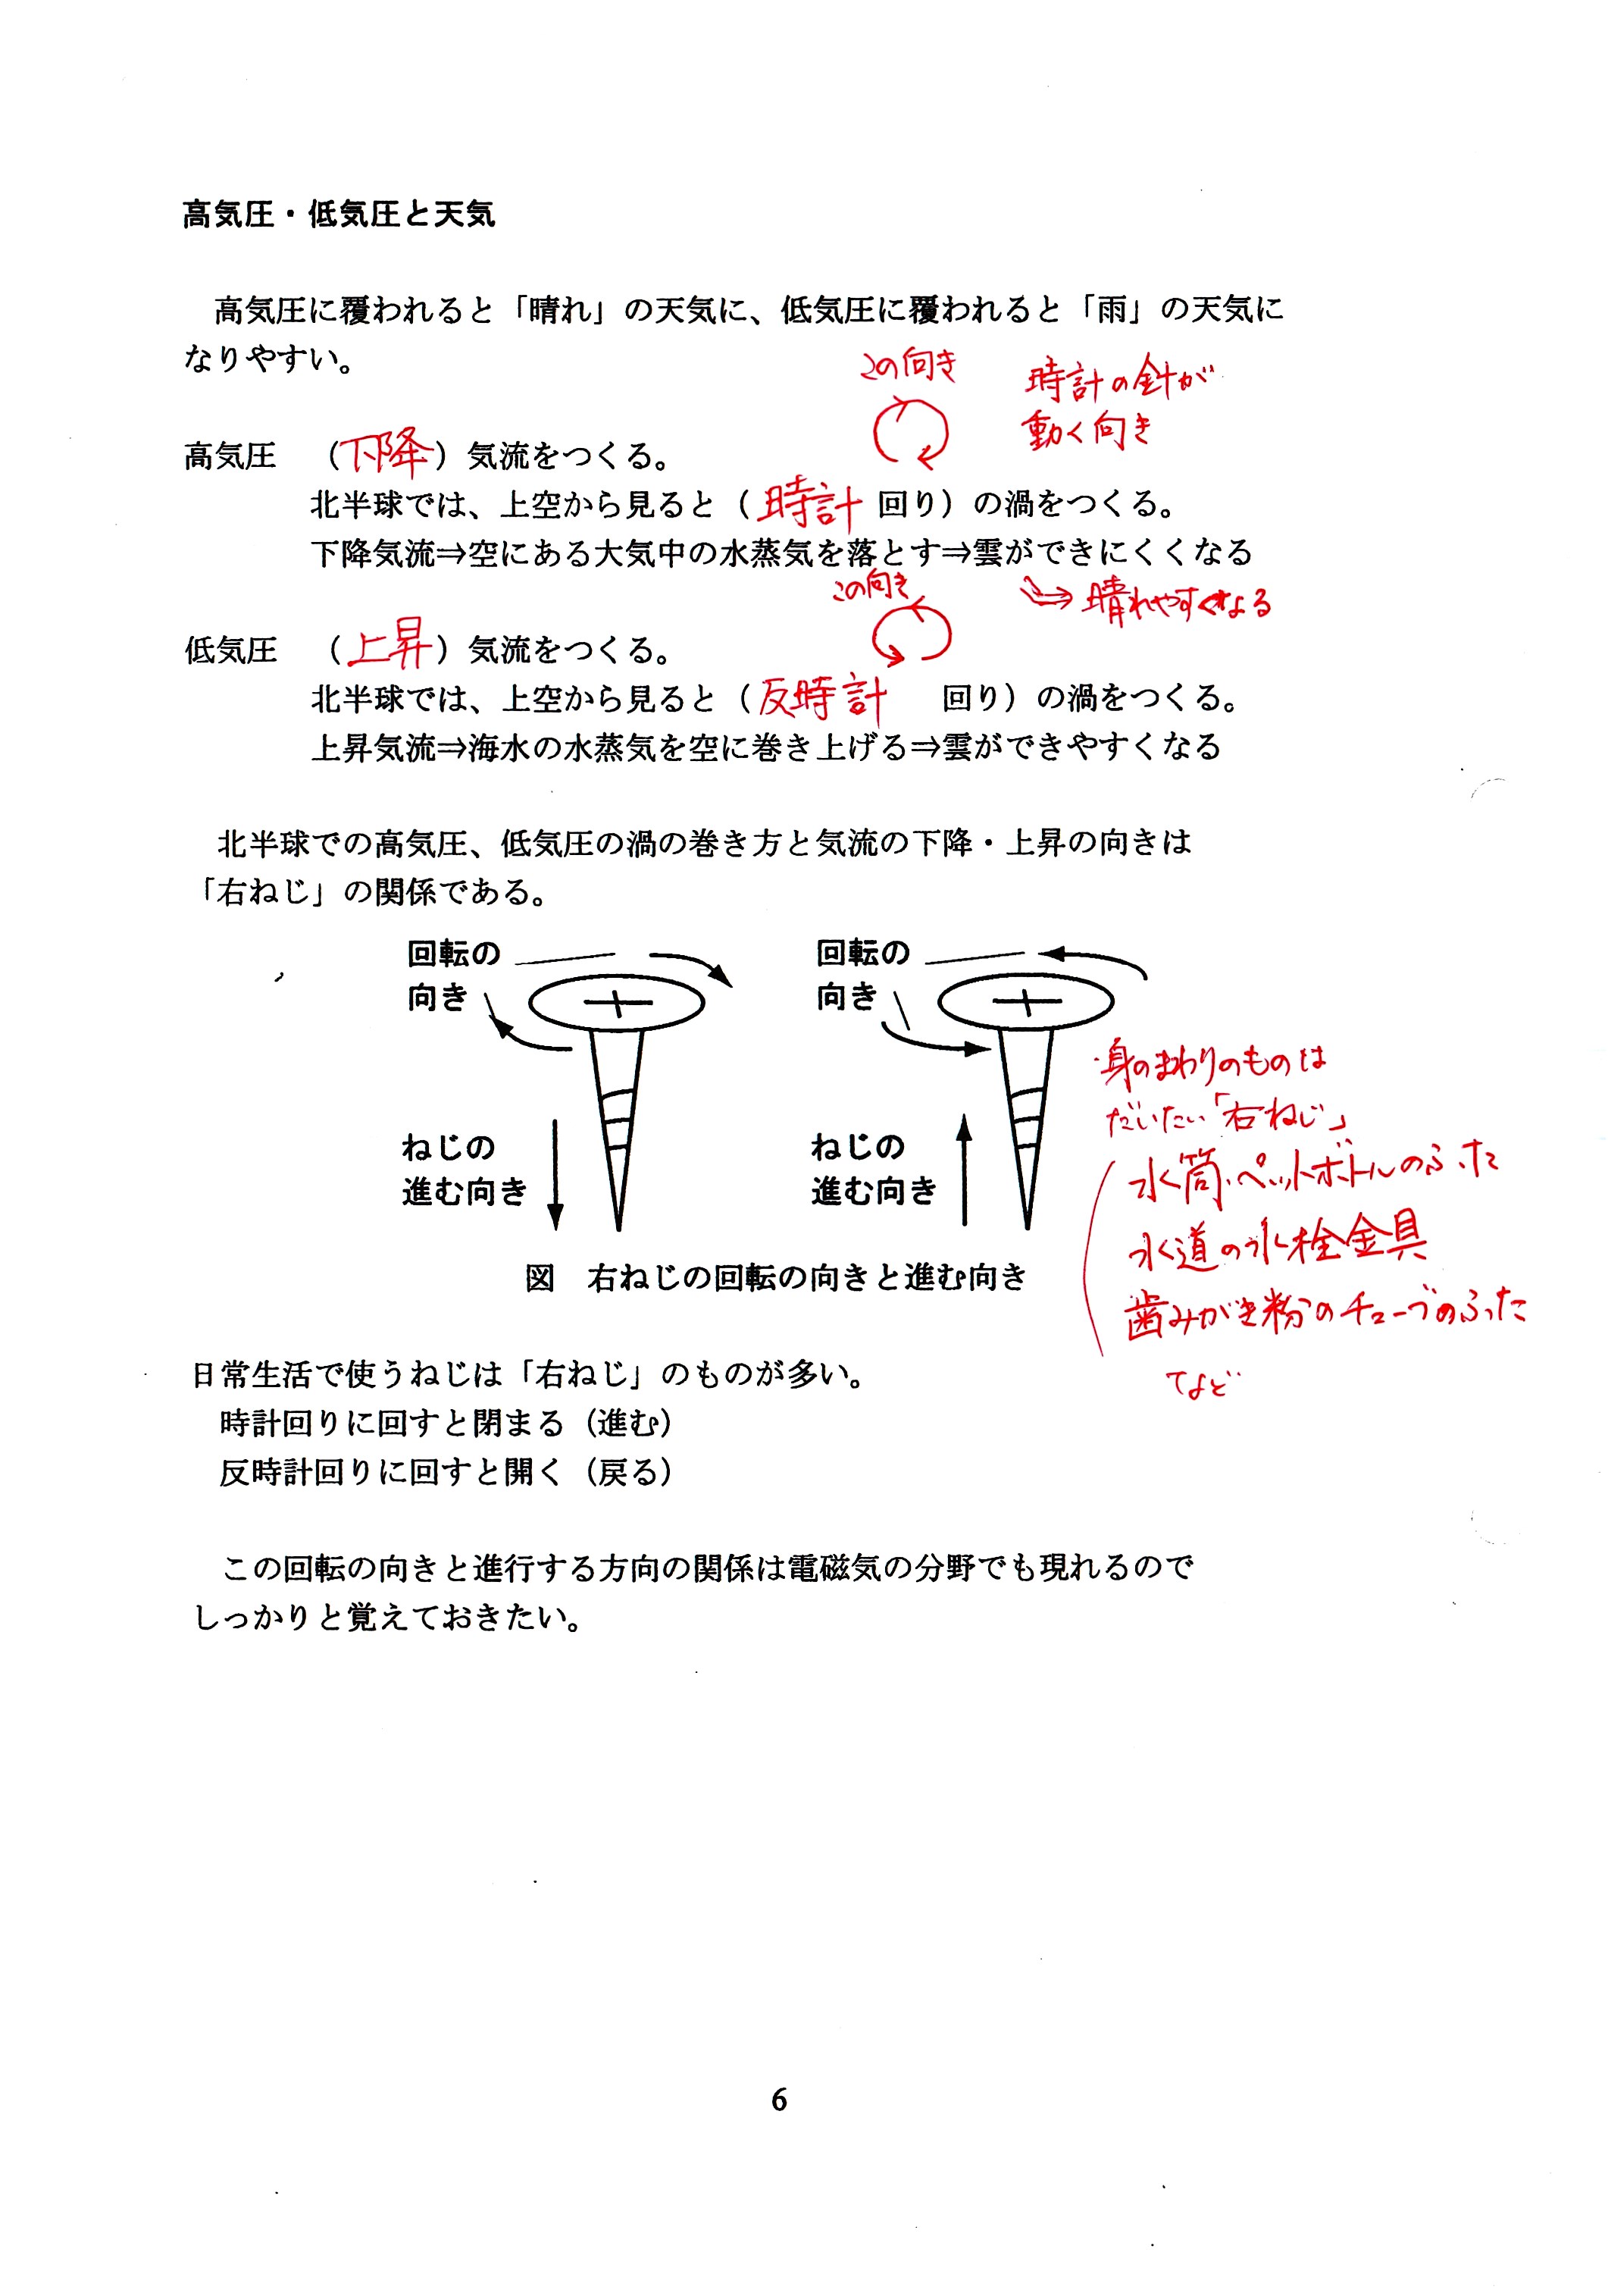 高気圧・低気圧と天気
高気圧に覆われると「晴れ」の天気に、低気圧に覆われると「雨」の天気に
なりやすい。
この向き
時計の針が
動く向き
高気圧 （下降）気流をつくる。
北半球では、上空から見ると（時計 回り）の渦をつくる。
下降気流⇒空にある大気中の水蒸気を落とす⇒雲ができにくくなる
⇒晴れやすくなる
この向き
低気圧 （上昇）気流をつくる。
北半球では、上空から見ると（反時計 回り）の渦をつくる。
上昇気流⇒海水の水蒸気を空に巻き上げる⇒雲ができやすくなる
北半球での高気圧、低気圧の渦の巻き方と気流の下降・上昇の向きは
「右ねじ」の関係である。
回転の
向き
ねじの
進む向き
回転の
向き
ねじの
進む向き
図 右ねじの回転の向きと進む向き
身のまわりのものは
だいたい「右ねじ」
水筒・ペットボトルのふた
水道の水栓金具
歯みがき粉のチューブのふた
など
日常生活で使うねじは「右ねじ」のものが多い。
時計回りに回すと閉まる（進む）
反時計回りに回すと開く（戻る）
この回転の向きと進行する方向の関係は電磁気の分野でも現れるので
しっかりと覚えておきたい。
6